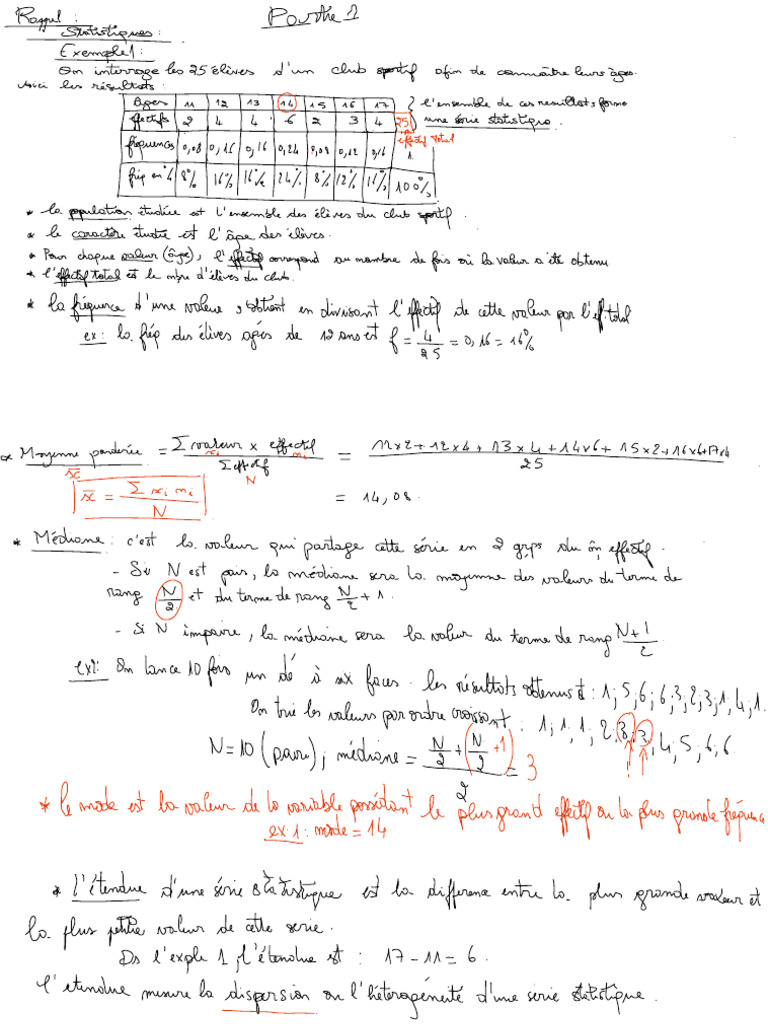 Rappel : Partie 1
Statistiques :
Exemple 1 :
On interroge les 25 élèves d'un club sportif afin de connaître leurs âges.
Voici les résultats :
Ages 11 12 13 14 15 16 17 l'ensemble de ces resultats forme
effectifs 2 4 4 6 2 3 4 25 une série statistique.
effectif total
fréquences 0,08 0,16 0,16 0,24 0,08 0,12 0,16 1
fréq en % 8% 16% 16% 24% 8% 12% 16% 100%
* la population étudiée est l'ensemble des élèves du club sportif.
* le caractère étudié est l'âge des élèves.
* Pour chaque valeur (âge), l'effectif correspond au nombre de fois où la valeur a été obtenu
* l'effectif total est le nbre d'élèves du club.
* la fréquence d'une valeur s'obtient en divisant l'effectif de cette valeur par l'ef. total
ex : la fréq des élèves agés de 12 ans est f = 4/25 = 0,16 = 16%
* Moyenne pondérée = Σ valeur x effectif / Σ effectif = 11x2+12x4+13x4+14x6+15x2+16x6+17x4 / 25
xi ni N
x̄
x̄ = Σ xi ni / N = 14,08.
* Médiane : c'est la valeur qui partage cette série en 2 grps du m̂ effectif.
- Si N est pair, la médiane sera la moyenne des valeurs du terme de
rang N/2 et du terme de rang N/2 + 1.
- Si N impaire, la médiane sera la valeur du terme de rang N+1/2
ex2: On lance 10 fois un dé à six faces. les résultats obtenus : 1; 5; 6; 6; 3; 2; 3; 1; 4; 1.
On trie les valeurs par ordre croissant : 1; 1; 1; 2; 3; 3; 4; 5; 6; 6.
N=10 (paire); médiane = N/2 + (N/2 + 1) / 2 = 3
* le mode est la valeur de la variable possédant le plus grand effectif ou la plus grande fréquence
ex 1 : mode = 14
* l'étendue d'une série statistique est la difference entre la plus grande valeur et
la plus petite valeur de cette serie.
Ds l'exple 1, l'étendue est : 17-11 = 6.
l'etendue mesure la dispersion ou l'hétérogénéité d'une série statistique.